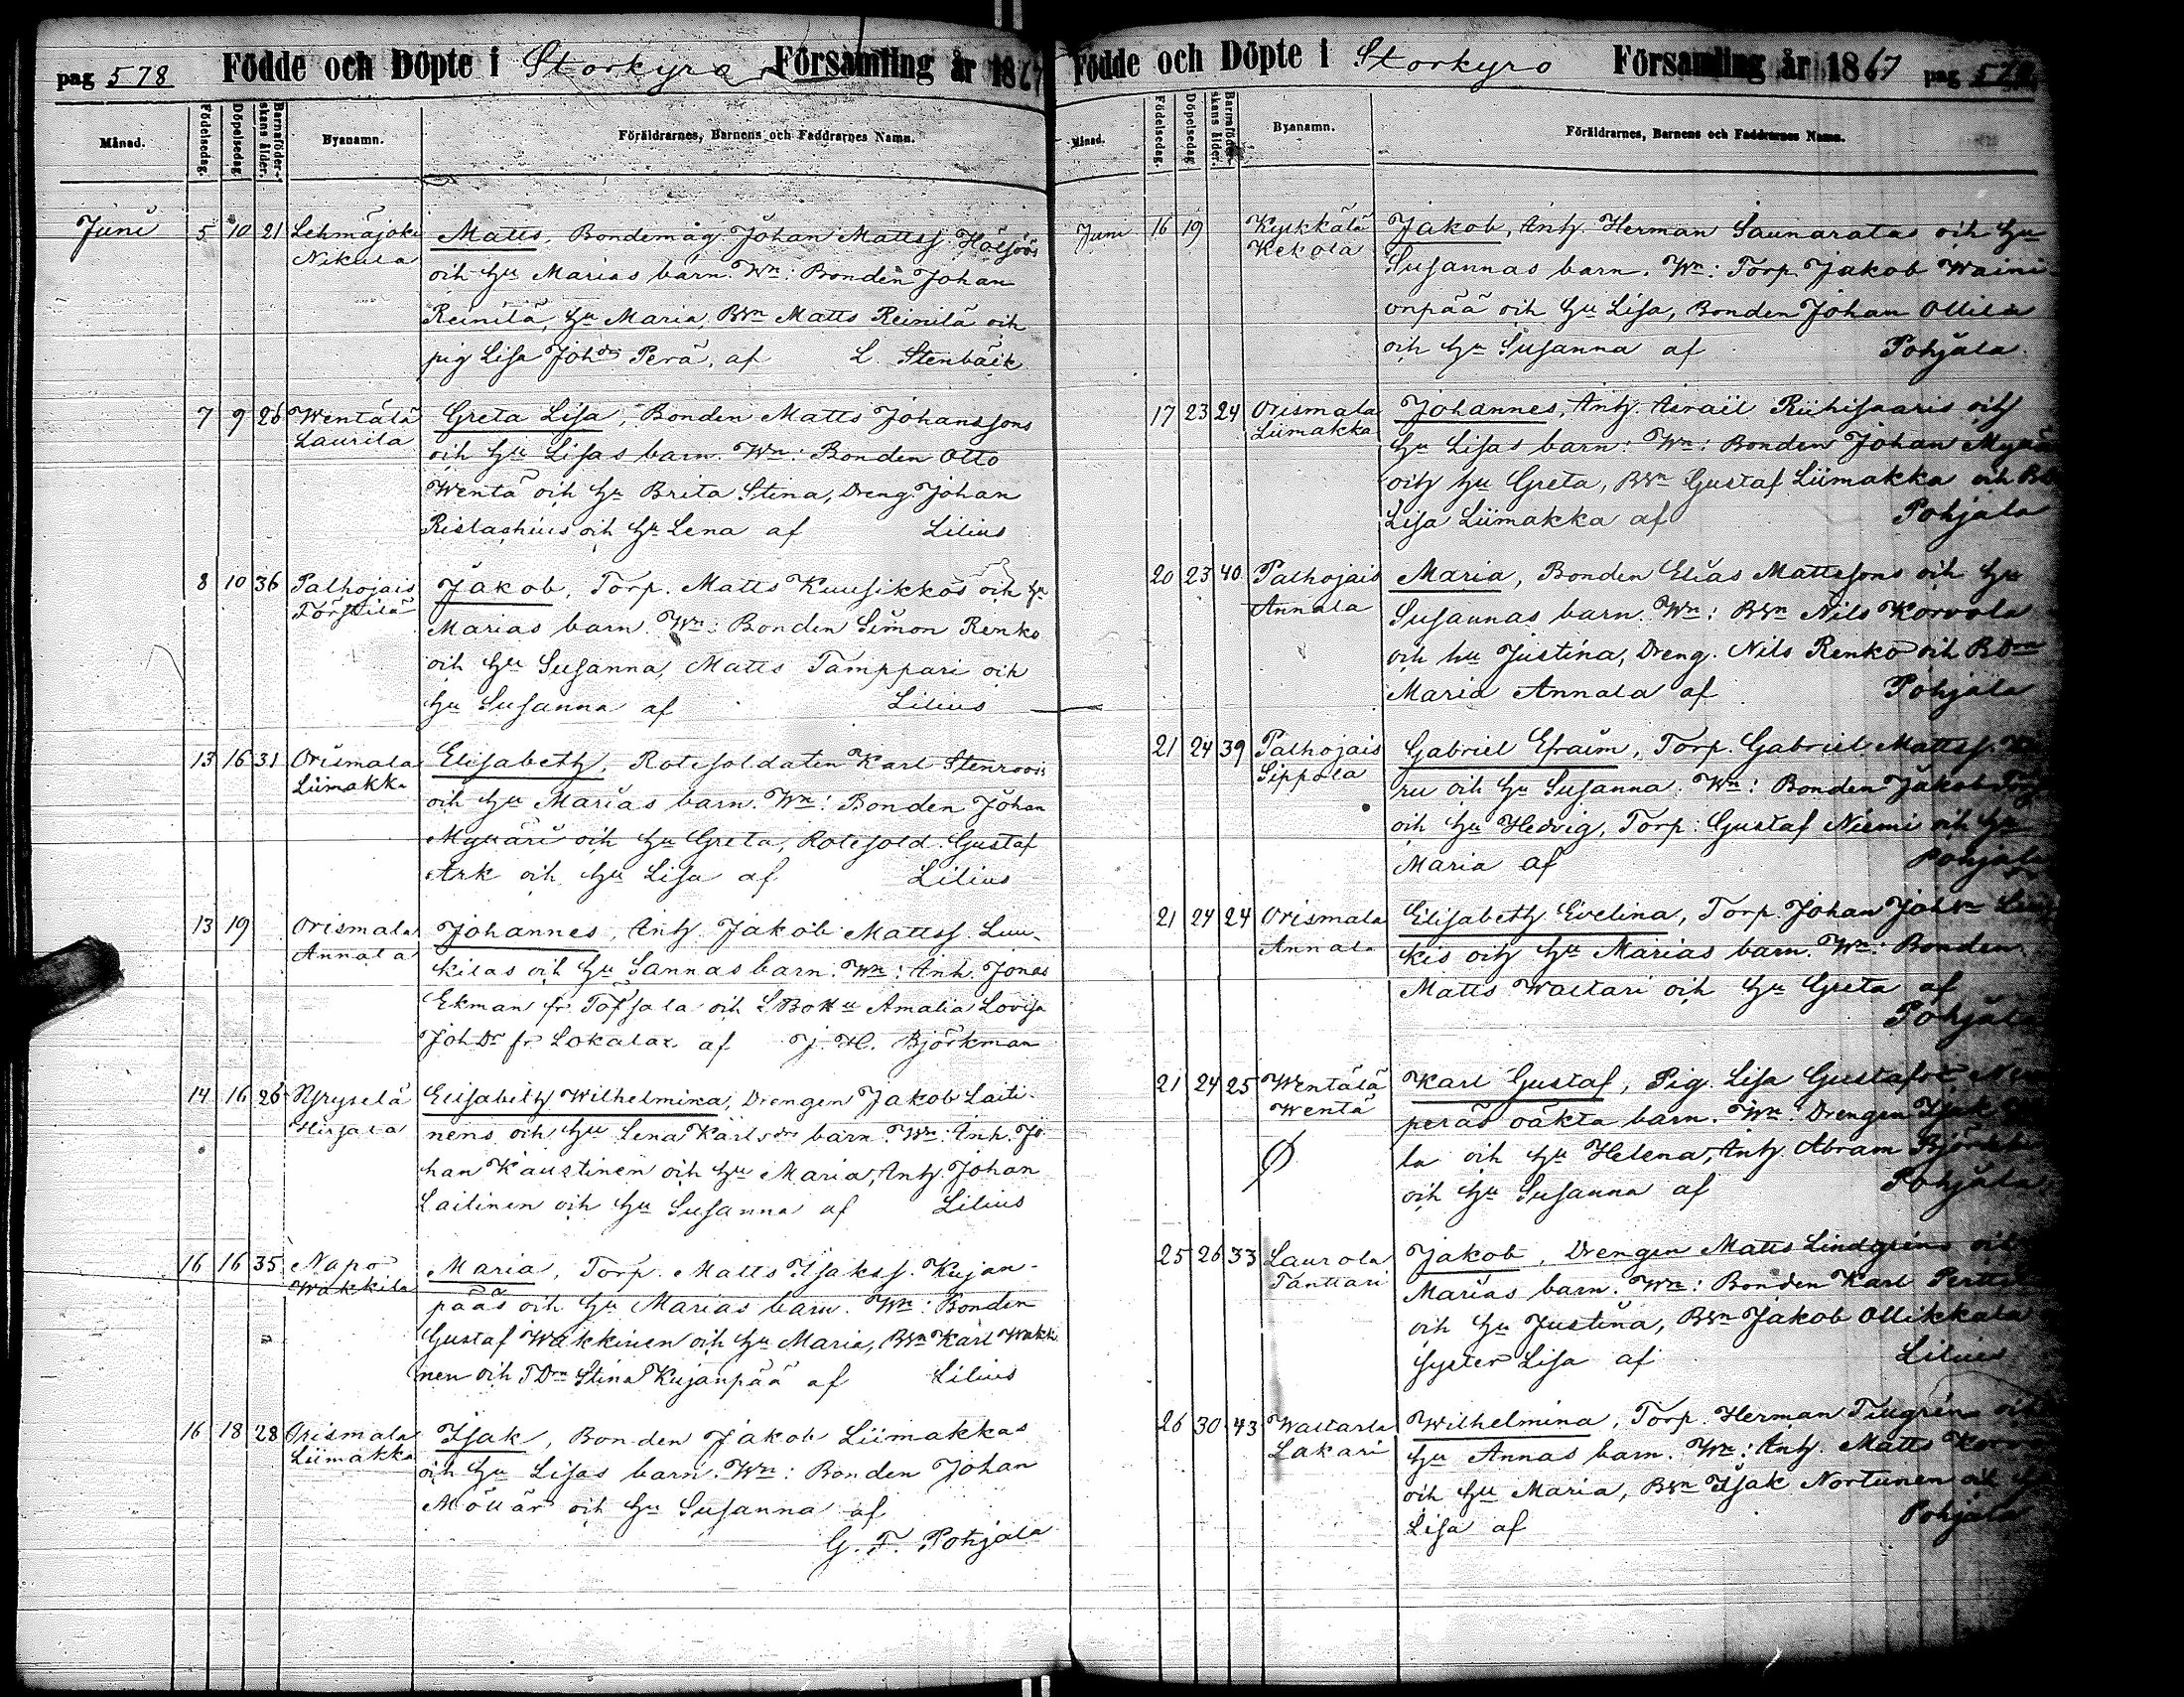 pag 578 Födde och Döpte i Storkyro Församling år 1867
Månad. Födelsedag. Döpelsedag. Barnaföderskans ålder. Byanamn. Föräldrarnes, Barnens och Faddrarnes Namn.
Juni 5 10 21 Lehmäjoki Matts, Bondemåg Johan Mattss.
Nikula och hu Marias barn. Wn: Bonden Johan
Reinilä, hu Maria, Bsn Matts Reinilä och
pig Lisa Johdr Perä, af L. Stenbäck
7 9 26 Wentälä Greta Lisa, Bonden Matts Johanssons
Laurila och hu Lisas barn. Wn: Bonden Otto
Wentä och hu Brita Stina, Dreng Johan
och hu Lena af Lilius
8 10 36 Palhojais Jakob, Torp. Matts Kuusikkos och hu
Törstilä Marias barn. Wn: Bonden Simon Renko
och hu Susanna, Matts Tamppari och
hu Susanna af Lilius
13 16 31 Orismala Elisabeth, Rotesoldaten Karl Stenroos
Liimakka och hu Marias barn. Wn: Bonden Johan
Myllari och hu Greta, Rotesold. Gustaf
Ark och hu Lisa af Lilius
13 19 Orismala Johannes, Inh. Jakob Mattss. Luu-
Annala kilas och hu Sannas barn. Wn: Inh. Jonas
Ekman fr Töfsala och Amalia Lovisa
JohDr fr Lokalax af J. H. Björkman
14 16 26 Elisabeth Wilhelmina, Drengen Jakob Laiti-
Hirsala nens och hu Lena Karlsdrs barn. Wn: Inh. Jo-
han Kaustinen och hu Maria, Inh. Johan
Laitinen och hu Susanna af Lilius
16 16 35 Napo Maria, Torp. Matts Isakss. Kujan-
Wakkila pääs och hu Marias barn. Wn: Bonden
Gustaf Wakkinen och hu Maria, Bsn Karl Wakki
nen och TDrn Stina Kujanpää af Lilius
16 18 28 Orismala Isak, Bonden Jakob Liimakkas
Liimakka och hu Lisas barn. Wn: Bonden Johan
Möllär och hu Susanna af
G. F. Pohjala
Födde och Döpte i Storkyro Församling år 1867 pag
Månad. Födelsedag. Döpelsedag. Barnaföderskans ålder. Byanamn. Föräldrarnes, Barnens och Faddrarnes Namn.
Juni 16 19 Kylkkälä Jakob, Inh. Herman Saunaratas och hu
Kekola Susannas barn. Wn: Torp. Jakob Waini-
onpää och hu Lisa, Bonden Johan Ollila
och hu Susanna af Pohjala
17 23 24 Orismala Johannes, Inh. Israil Riihisaaris och
Liimakka hu Lisas barn: Wn: Bonden Johan
och hu Greta, Bsn Gustaf Liimakka och
Lisa Liimakka af Pohjala
20 23 40 Palhojais Maria, Bonden Elias Mattssons och hu
Annala Susannas barn. Wn: Bsn Nils Korvola
och hu Justina, Dreng. Nils Renko och BDrn
Maria Annala af Pohjala
21 24 39 Palhojais Gabriel Efraim, Torp. Gabriel Mattss.
Sippola ru och hu Susanna. Wn: Bonden Jakob
och hu Hedvig, Torp: Gustaf Niemi och hu
Maria af Pohjala
21 24 24 Orismala Elisabeth Evelina, Torp. Johan Johsn
Annala kis och hu Marias barn. Wn: Bonden
Matts Waltari och hu Greta af
Pohjala
21 24 25 Wentälä Karl Gustaf, Pig. Lisa Gustafsdr
Wentä peräs oäkta barn. Wn: Drengen Isak
la och hu Helena, Inh. Abram
och hu Susanna af Pohjala
25 26 33 Laurola Jakob, Drengen Matts Lindgrens och
Tanttari Marias barn. Wn: Bonden Karl
och hu Justina, Bsn Jakob Ollikkala
syster Lisa af Lilius
26 30 43 Waltarla Wilhelmina, Torp. Herman Tillgrens och
Lakari hu Annas barn. Wn: Inh. Matts
och hu Maria, Bsn Isak Nortunen och
Lisa af Pohjala